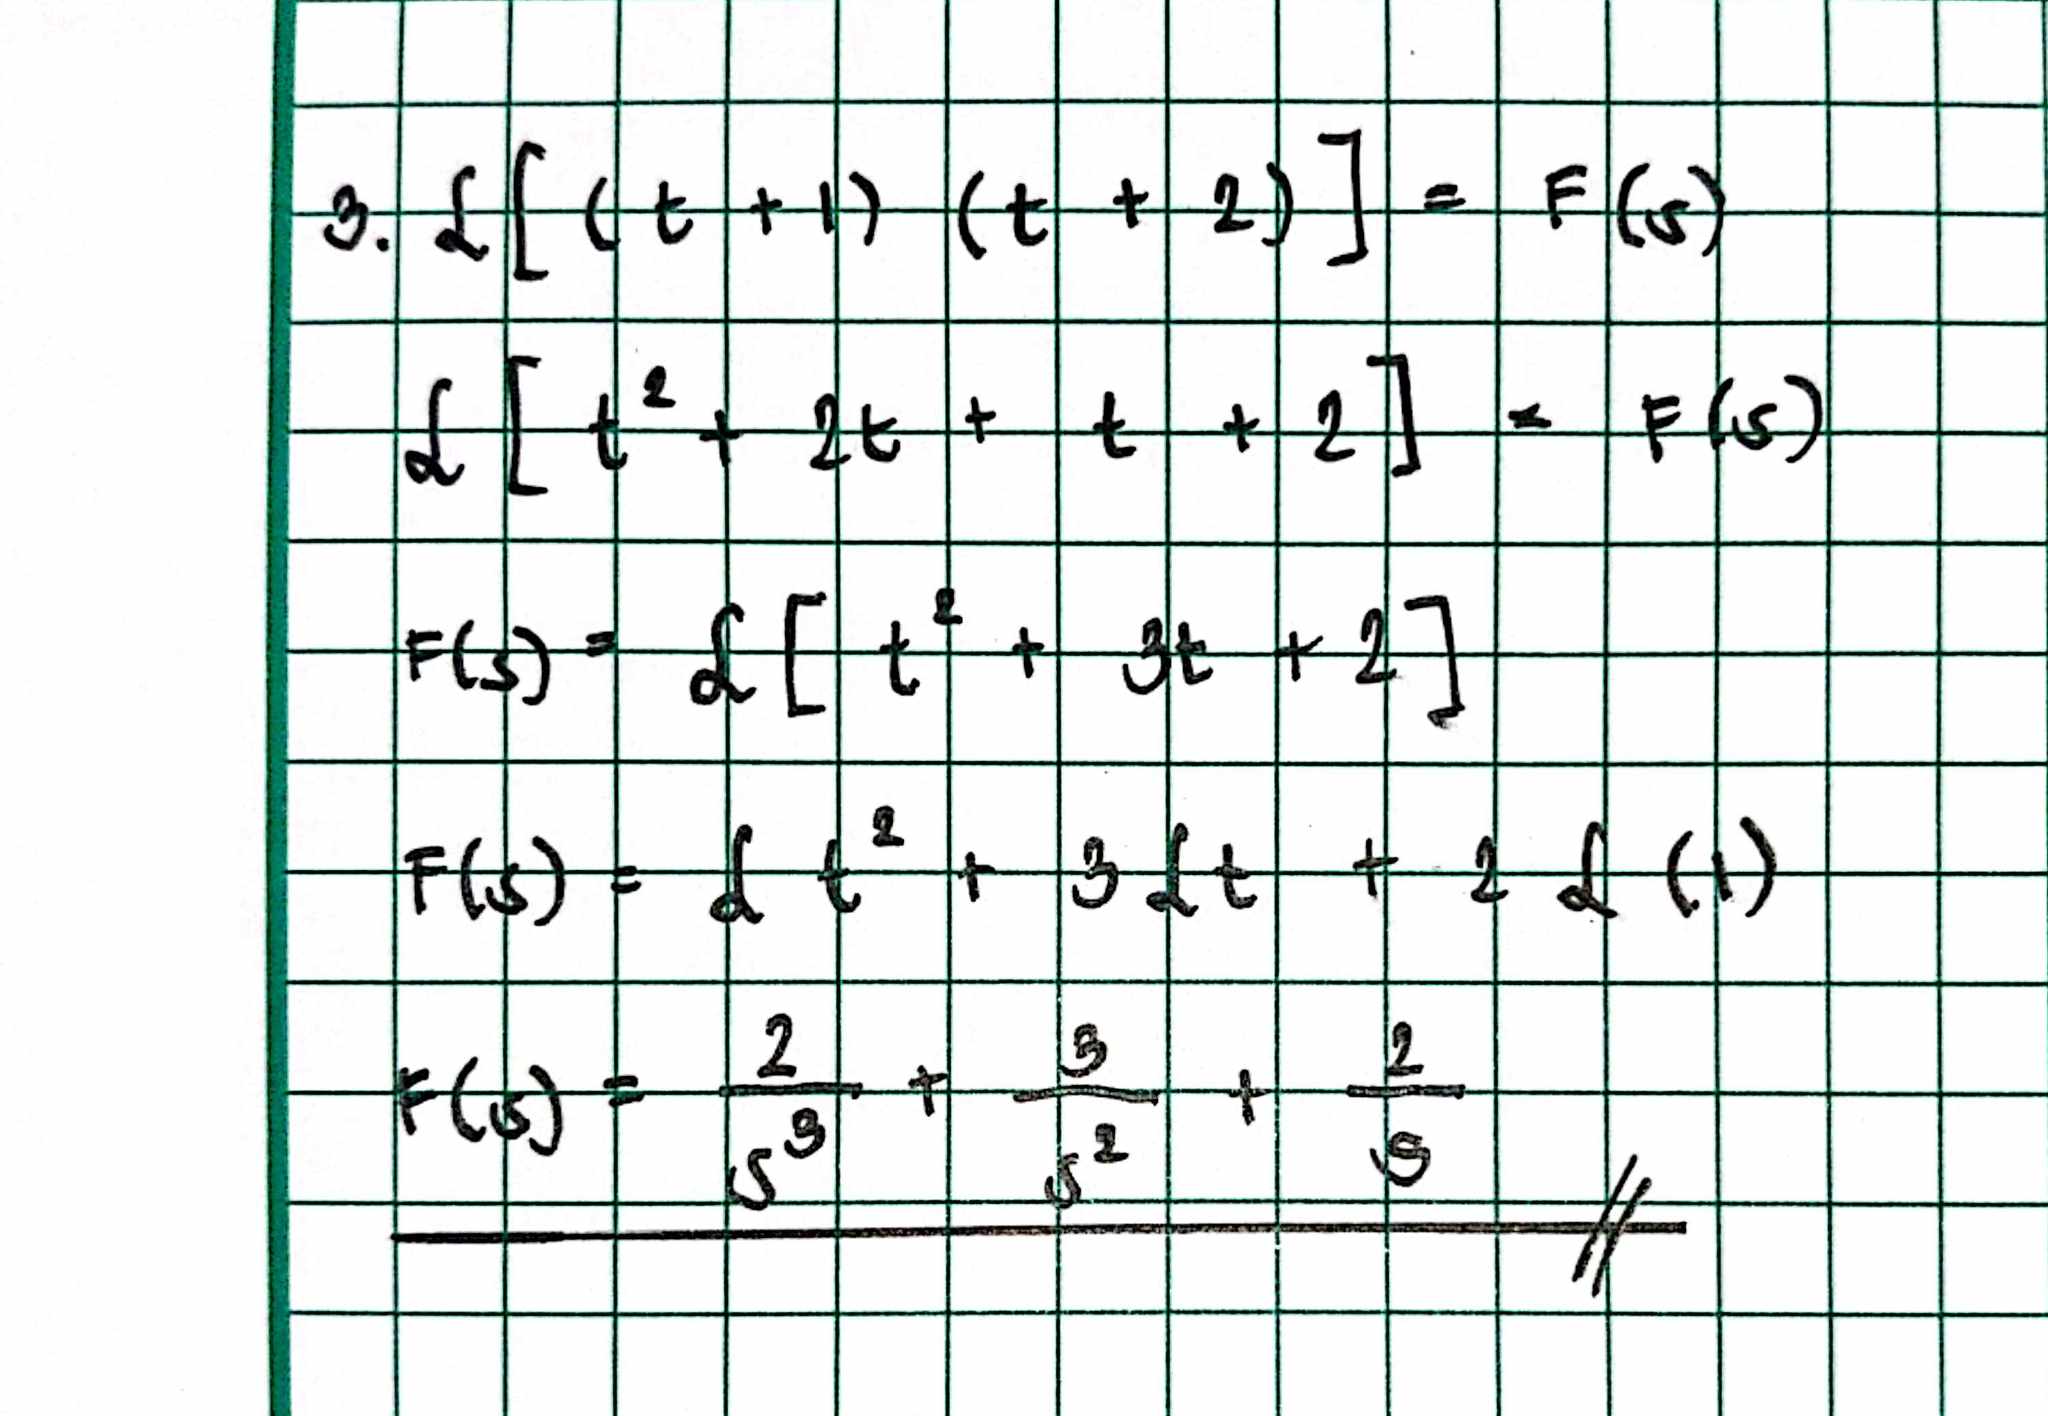 3. ℒ[(t + 1) (t + 2)] = F(s)
ℒ[t² + 2t + t + 2] = F(s)
F(s) = ℒ[t² + 3t + 2]
F(s) = ℒ t² + 3 ℒ t + 2 ℒ (1)
F(s) = 2/s³ + 3/s² + 2/s